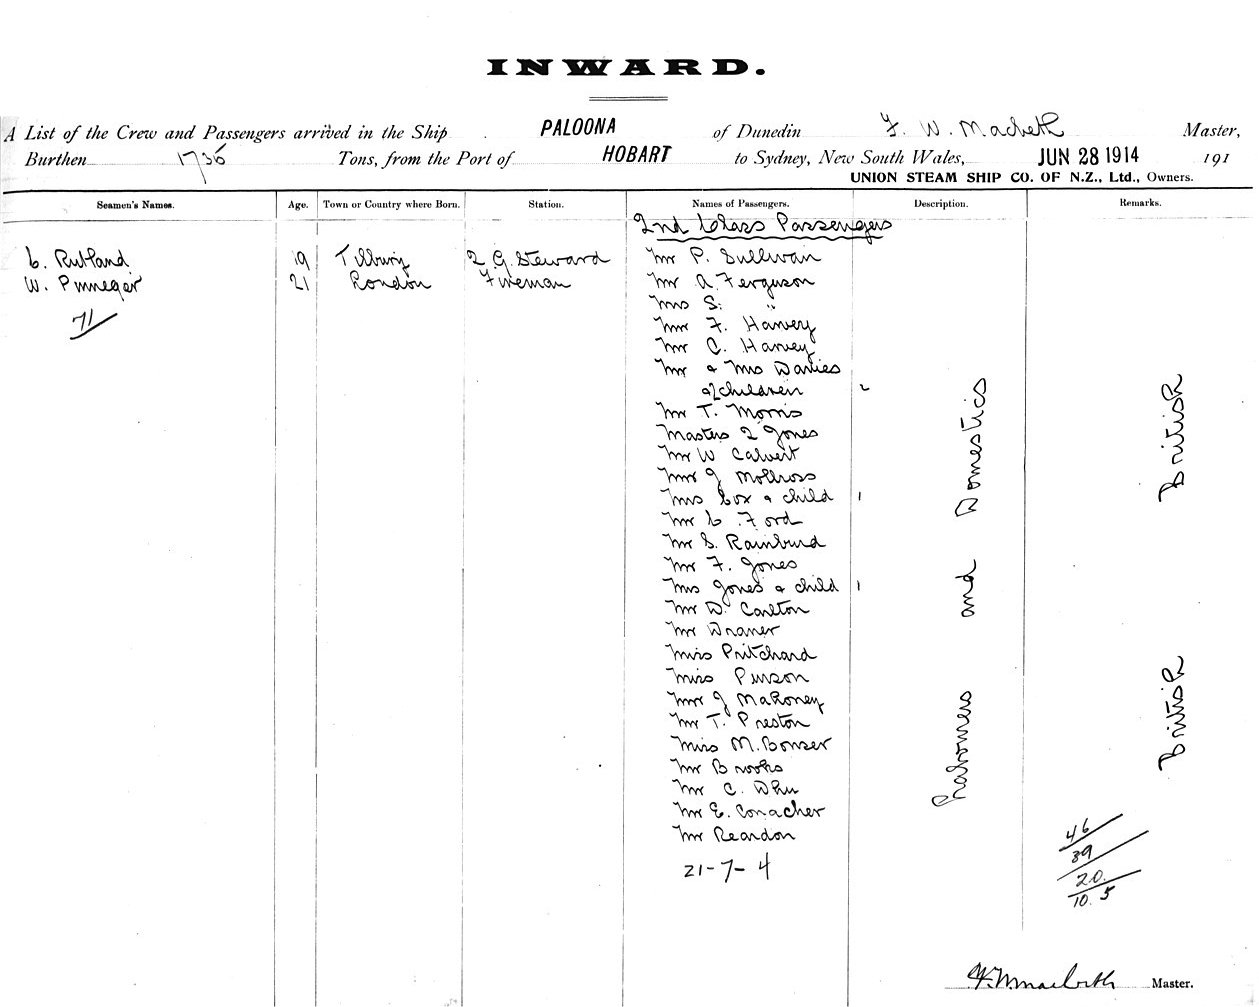 INWARD.
A List of the Crew and Passengers arrived in the Ship PALOONA of Dunedin F. W. Macbeth Master,
Burthen 1736 Tons, from the Port of HOBART to Sydney, New South Wales, JUN 28 1914 191
UNION STEAM SHIP CO. OF N.Z., Ltd., Owners.
Seamen's Names. Age. Town or Country where Born. Station. Names of Passengers. Description. Remarks.
2nd Class Passengers
C. Rutland 19 Tilbury 2 G. Steward Mr P. Sullivan
W. Pinnegar 21 London Fireman Mr A. Ferguson
71
Mrs S. "
Mr F. Harvey
Mr C. Harvey
Mr & Mrs Davies
children 2
Mr T. Morris
Masters 2 Jones
Mr W Calvert
Mr J Mollross
Mrs Cox & child 1
Mr C. Ford
Mr S. Rainbird
Mr F. Jones
Mrs Jones & child 1
Mr D. Carlton
Mr Draner
Miss Pritchard
Miss Pinson
Mr J Mahoney
Mr T. Preston
Miss M. Bonser
Mr Brooks
Mr C.
Mr E. Conacher
Mr Reardon
21-7-4
Labourers and Domestics
British British
46
39
20
10.5
F. W. Macbeth Master.